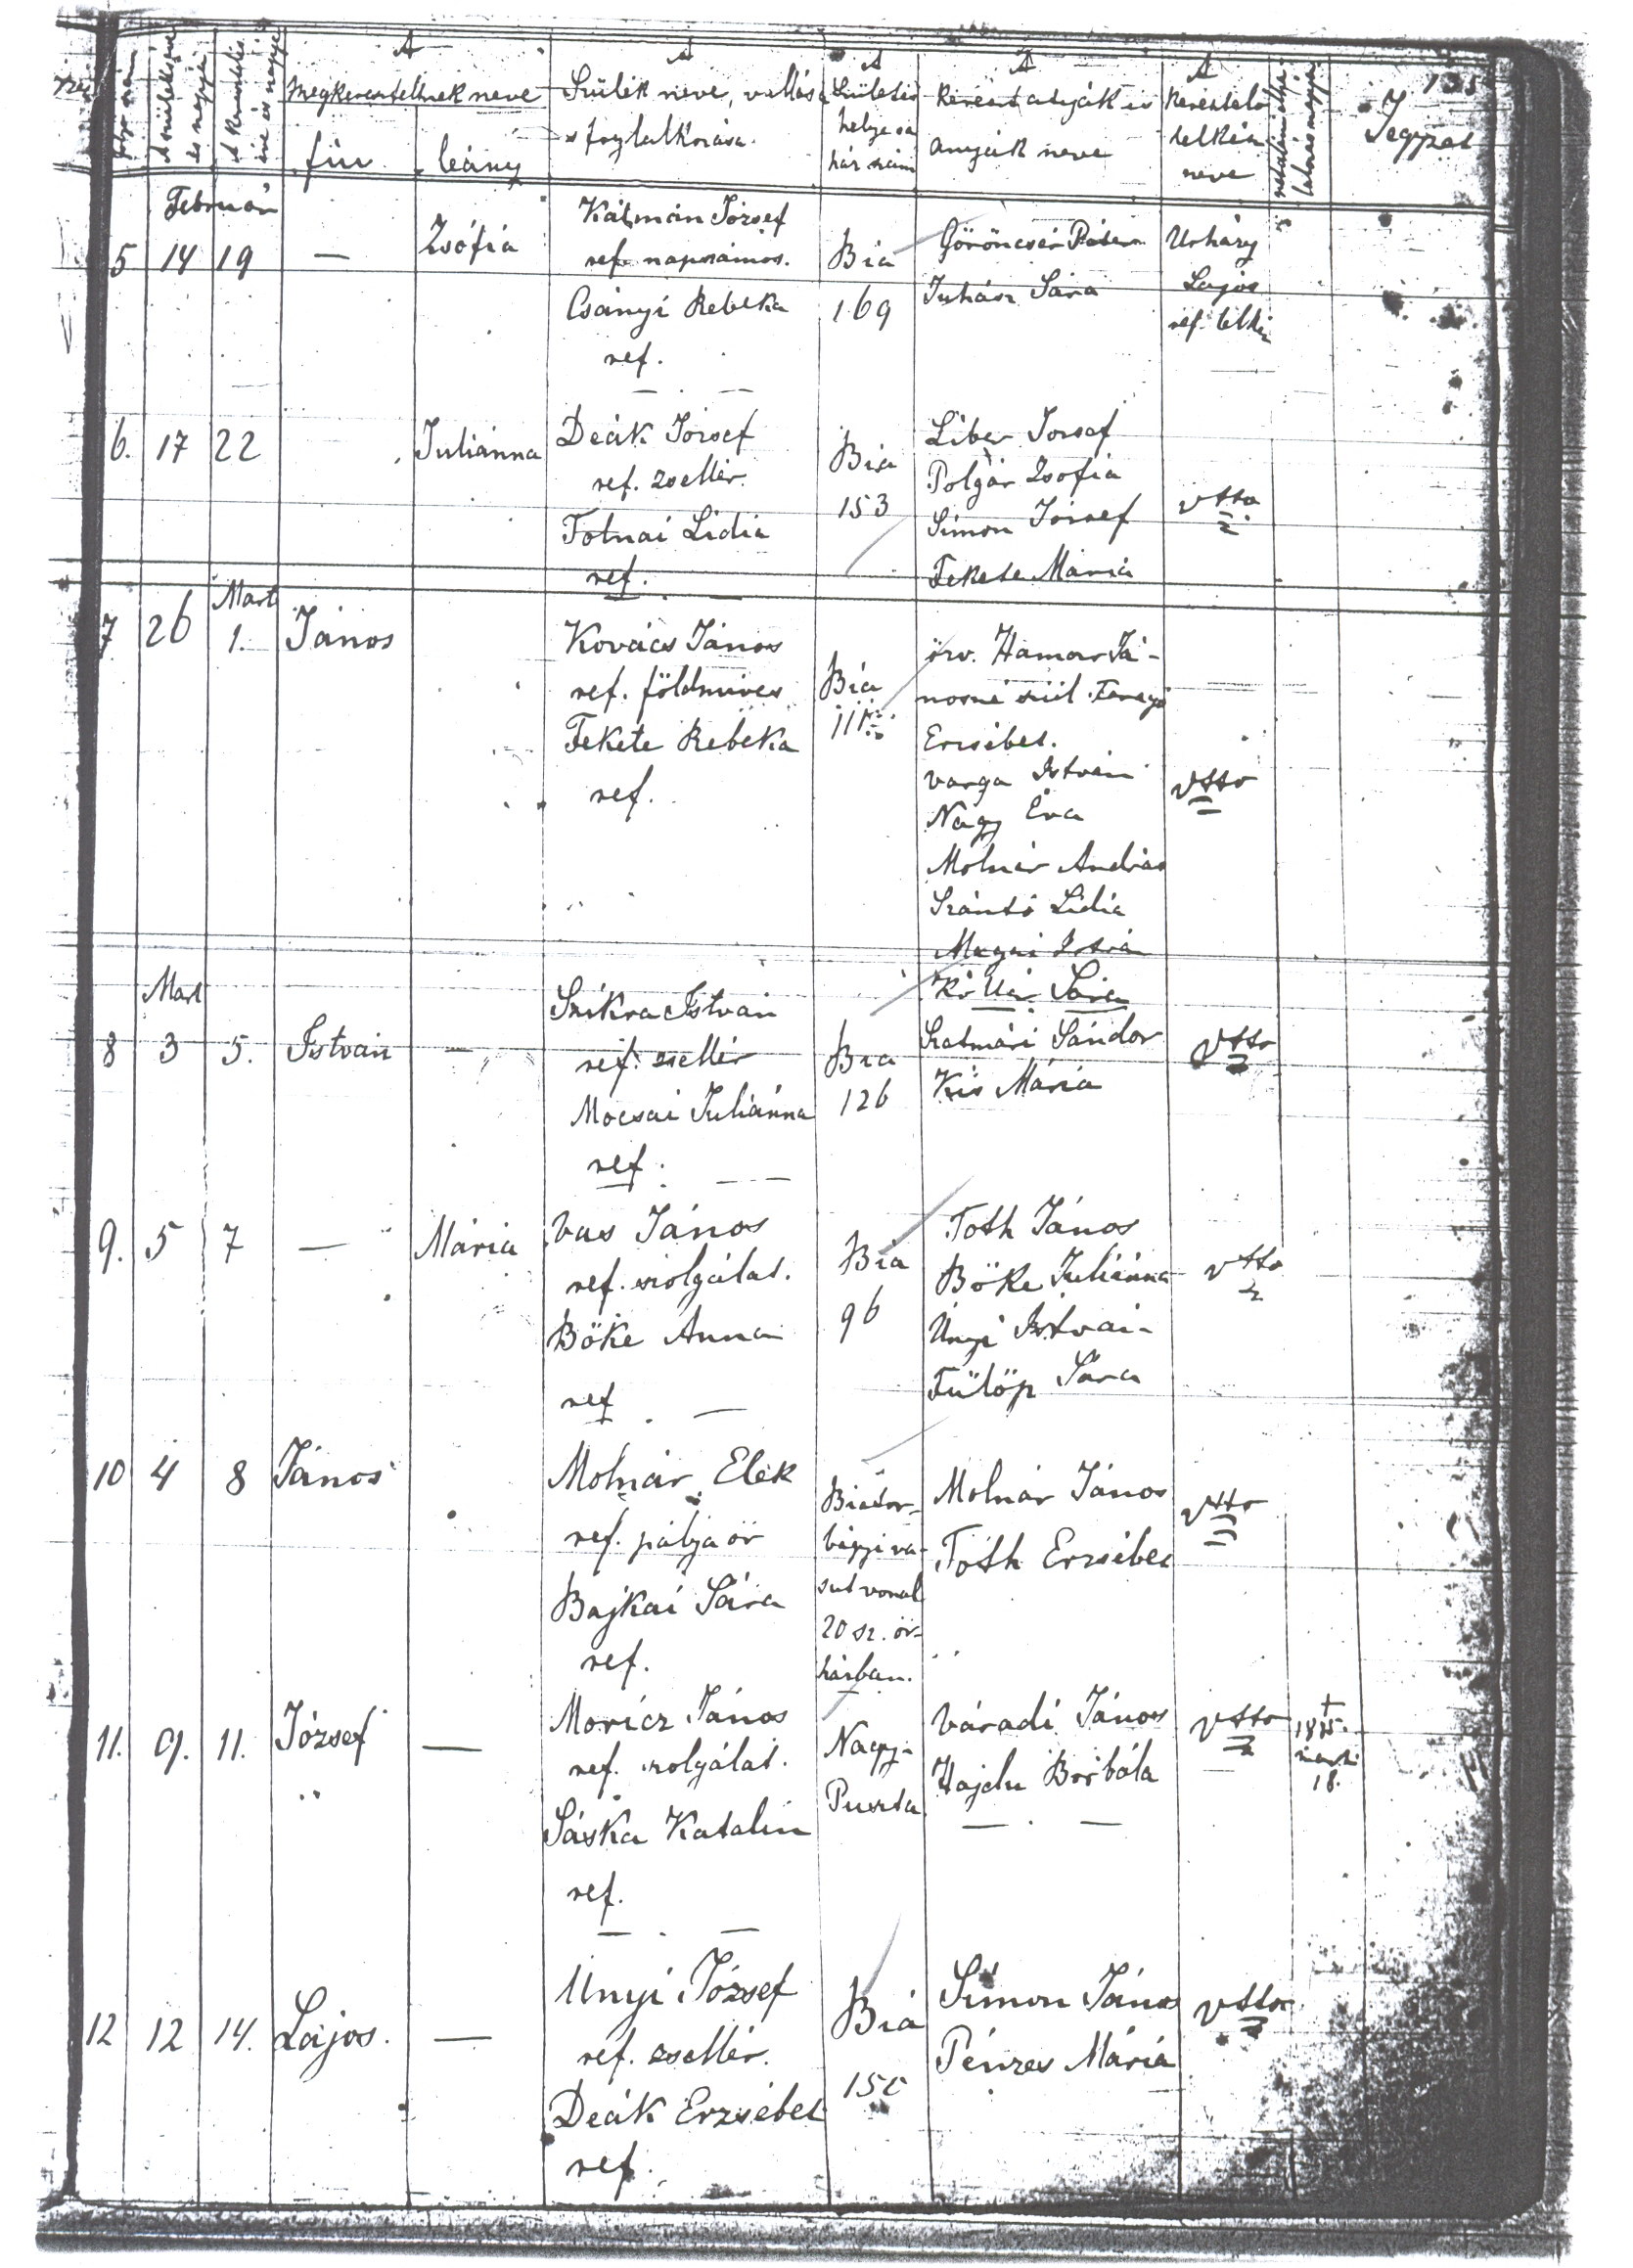 A
A
A
A
A
Megkereszteltnek neve
Szülék neve, vallása
s foglalkozása.
Születés
helye és
ház szám
Kereszt atyák és
anyák neve
Keresztelő
lelkész
neve
Jegyzet
fiu
leány
Február
5 14 19 — Zsófia
Kálmán József
ref. napszámos.
Csányi Rebeka
ref.
Bia
169
Göröncsér Péter
Juhász Sára
Urházy
Lajos
ref. lelkész
6. 17 22 Juliánna
Deák József
ref. zsellér.
Totnai Lidia
ref.
Bia
153
Liber József
Polgár Zsofia
Simon József
Fekete Mária
Mart
7 26 1. János
Kovács János
ref. földmives
Fekete Rebeka
ref.
Bia
özv. Hamar Já-
nosné szül.
Erzsébet.
Varga István
Nagy Éva
Molnár András
Szántó Lidia
Sára
Mart
8 3 5. István —
Szikra István
ref. zsellér
Mocsai Juliánna
ref.
Bia
126
Szatmári Sándor
Kis Mária
9. 5 7 — Mária
Vas János
ref. szolgálat.
Böke Anna
ref
Bia
96
Toth János
Böke Juliánna
Unyi István
Fülöp Sára
10 4 8 János
Molnár Elek
ref. pályaőr
Bajkai Sára
ref.
Biator-
bágyi va-
sut vonal
20 sz. őr-
házban.
Molnár János
Tóth Erzsébet
11. 9. 11. József —
Móricz János
ref. szolgálat.
Sáska Katalin
ref.
Nagy-
Puszta
Váradi János
Hajdu Borbála
†
18.
12 12 14. Lajos. —
Unyi József
ref. zsellér.
Deák Erzsébet
ref.
Bia
Simon János
Pénzes Mária